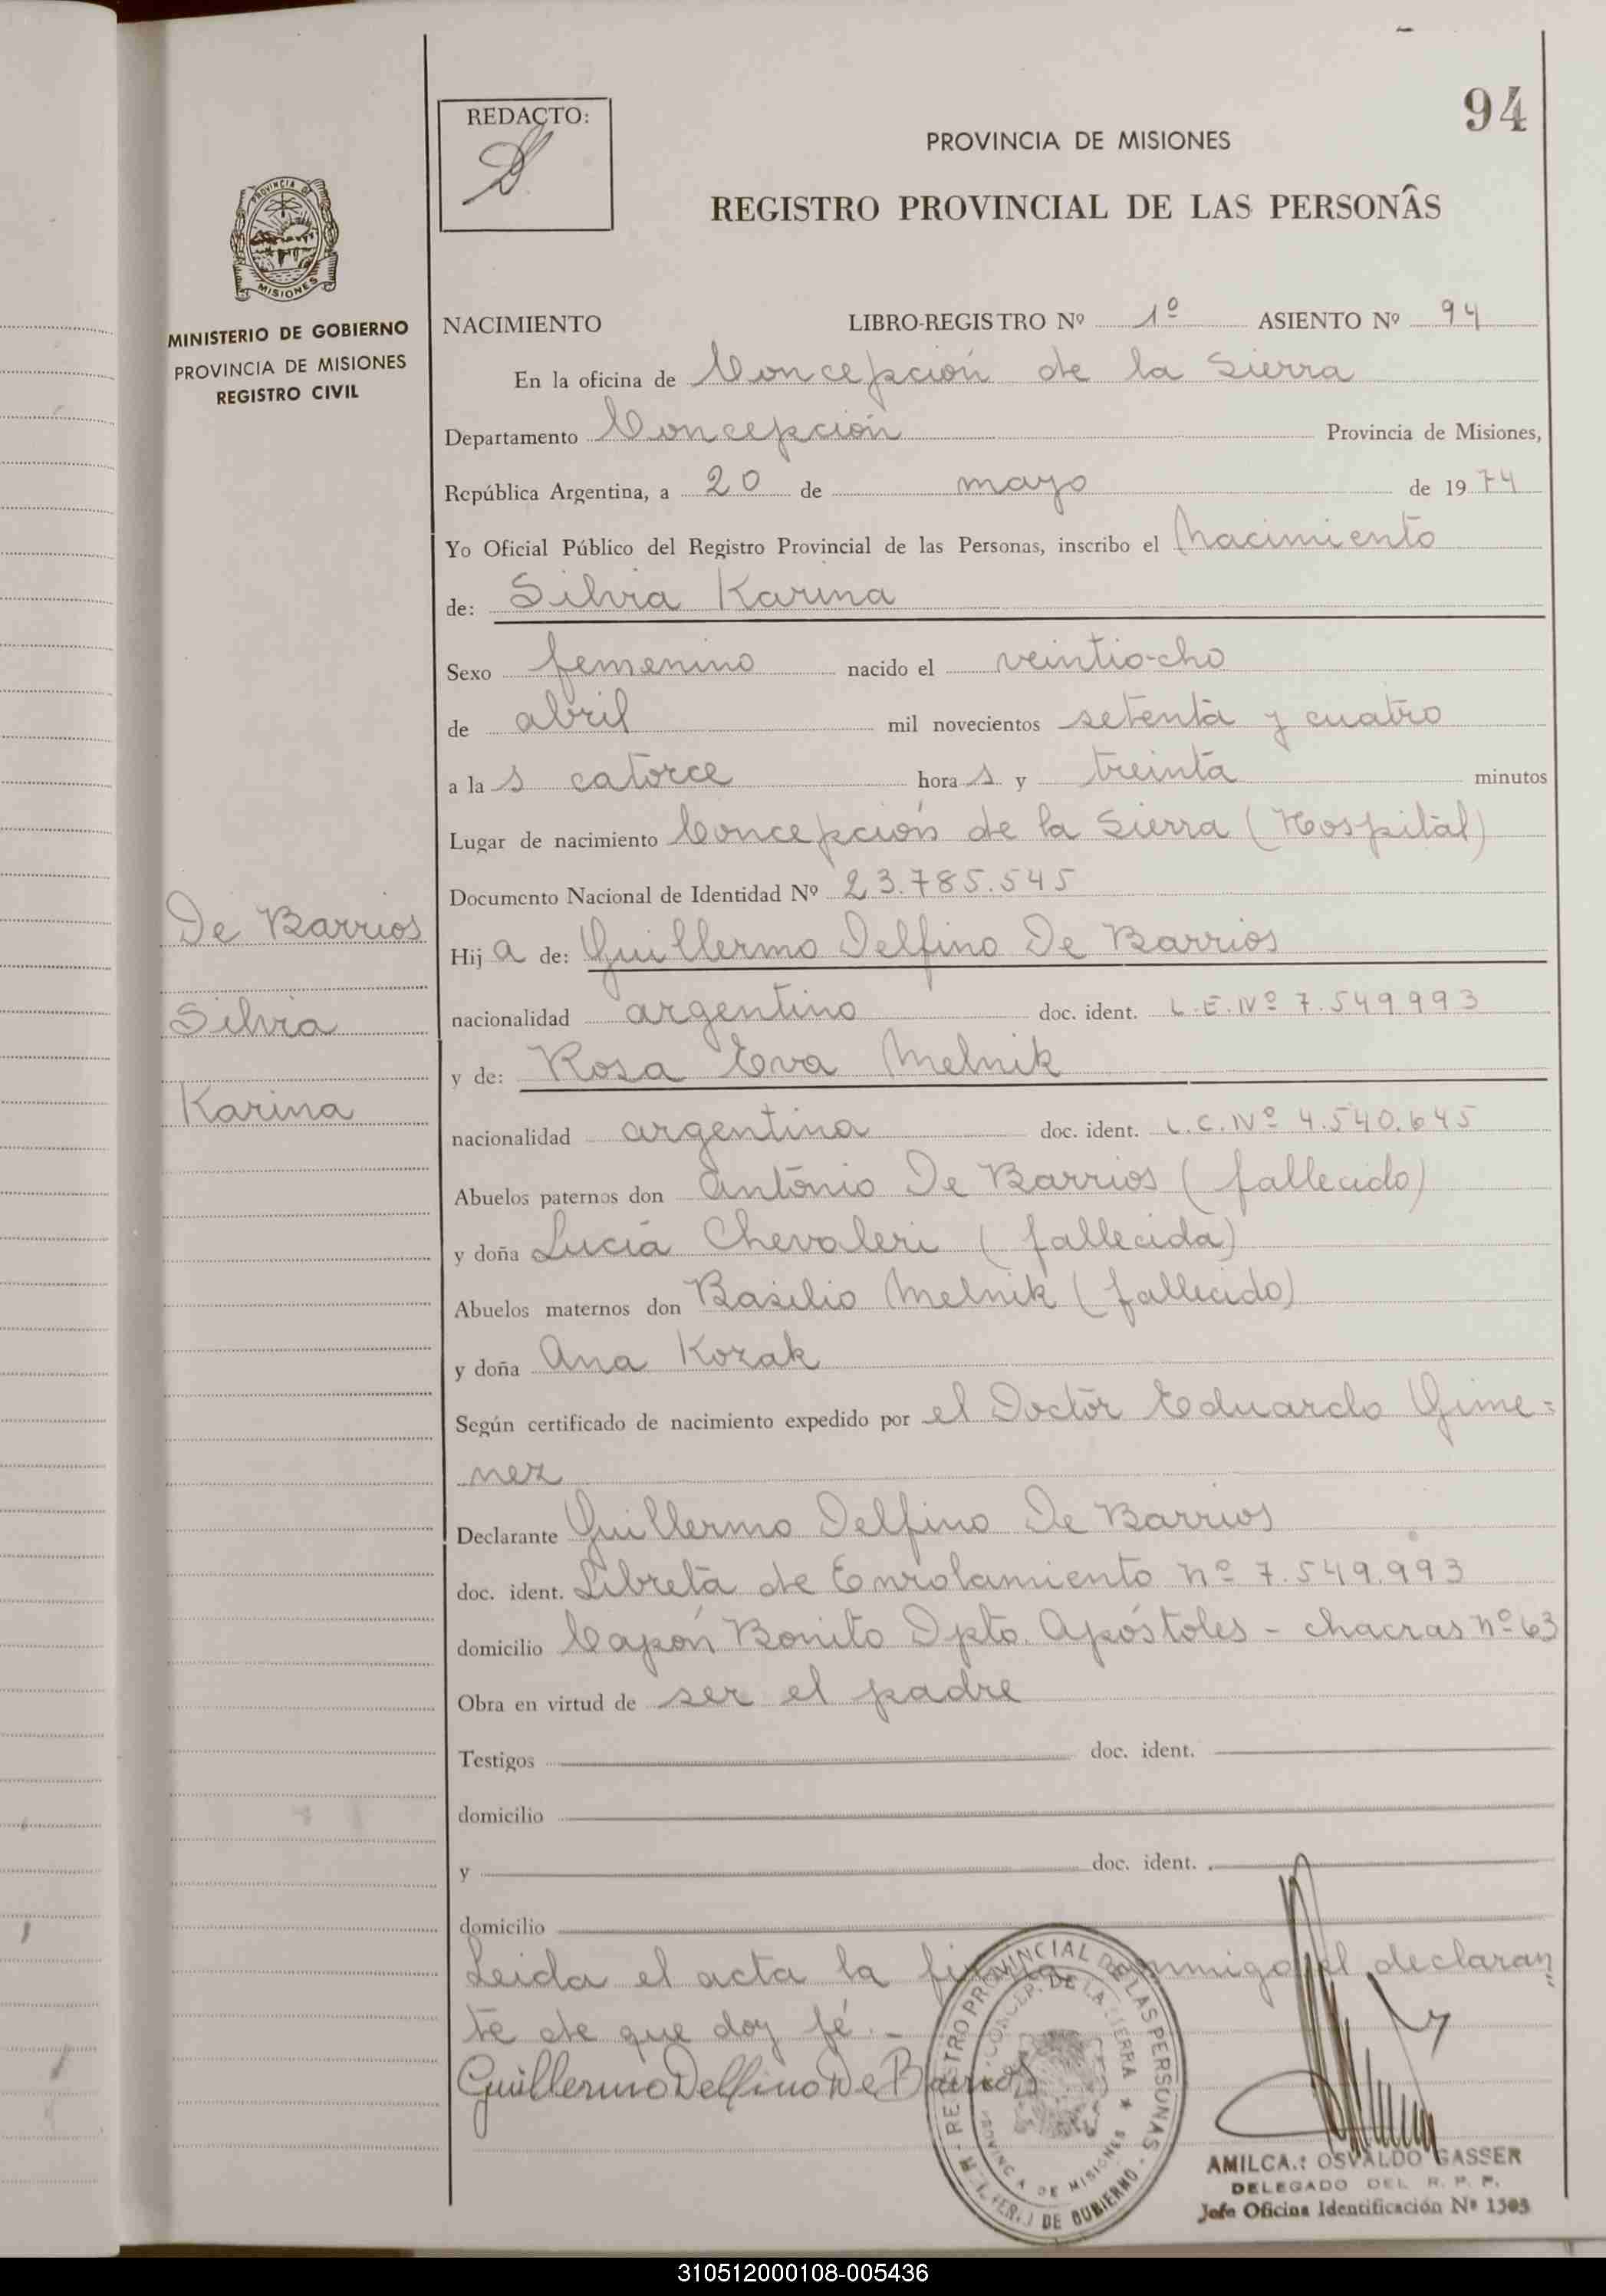 94
REDACTO:
PROVINCIA DE MISIONES
REGISTRO PROVINCIAL DE LAS PERSONAS
PROVINCIA DE
MISIONES
MINISTERIO DE GOBIERNO
PROVINCIA DE MISIONES
REGISTRO CIVIL
NACIMIENTO LIBRO-REGISTRO Nº 1º ASIENTO Nº 94
En la oficina de Concepción de la Sierra
Departamento Concepción Provincia de Misiones,
República Argentina, a 20 de mayo de 1974
Yo Oficial Público del Registro Provincial de las Personas, inscribo el Nacimiento
de: Silvia Karina
Sexo femenino nacido el veintiocho
de abril mil novecientos setenta y cuatro
a las catorce horas y treinta minutos
Lugar de nacimiento Concepción de la Sierra (Hospital)
Documento Nacional de Identidad Nº 23.785.545
De Barrios
Silvia
Karina
Hija de: Guillermo Delfino De Barrios
nacionalidad argentino doc. ident. L.E.Nº 7.549.993
y de: Rosa Eva Melnik
nacionalidad argentina doc. ident. L.C.Nº 4.540.645
Abuelos paternos don Antonio De Barrios (fallecido)
y doña Lucía Chevaleri (fallecida)
Abuelos maternos don Basilio Melnik (fallecido)
y doña Ana Kozak
Según certificado de nacimiento expedido por el Doctor Eduardo Gime=
nez
Declarante Guillermo Delfino De Barrios
doc. ident. Libreta de Enrolamiento nº 7.549.993
domicilio Capón Bonito Dpto. Apóstoles - chacras nº 63
Obra en virtud de ser el padre
Testigos doc. ident.
domicilio
y doc. ident.
domicilio
Leida el acta la firma conmigo el declaran
te de que doy fé.-
Guillermo Delfino De Barrios
REGISTRO PROVINCIAL DE LAS PERSONAS
CONCEP. DE LA SIERRA
PROVINCIA DE MISIONES
DE GOBIERNO
AMILCA.: OSVALDO GASSER
DELEGADO DEL R. P. P.
Jefe Oficina Identificación Nº 1303
310512000108-005436